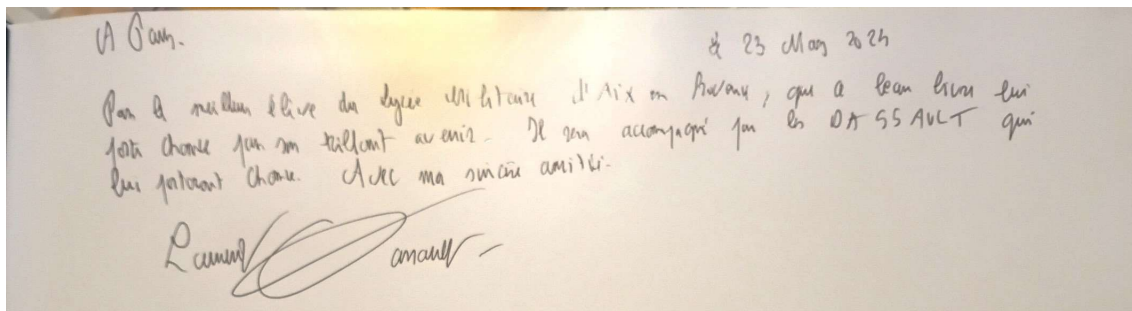 A Paris. le 23 Mars 2024
Pour le meilleur élève du Lycée Militaire d'Aix en Provence, que ce beau livre lui
porte chance pour son brillant avenir. Il sera accompagné par les DASSAULT qui
lui porteront chance. Avec ma sincère amitié.
Laurent Dassault